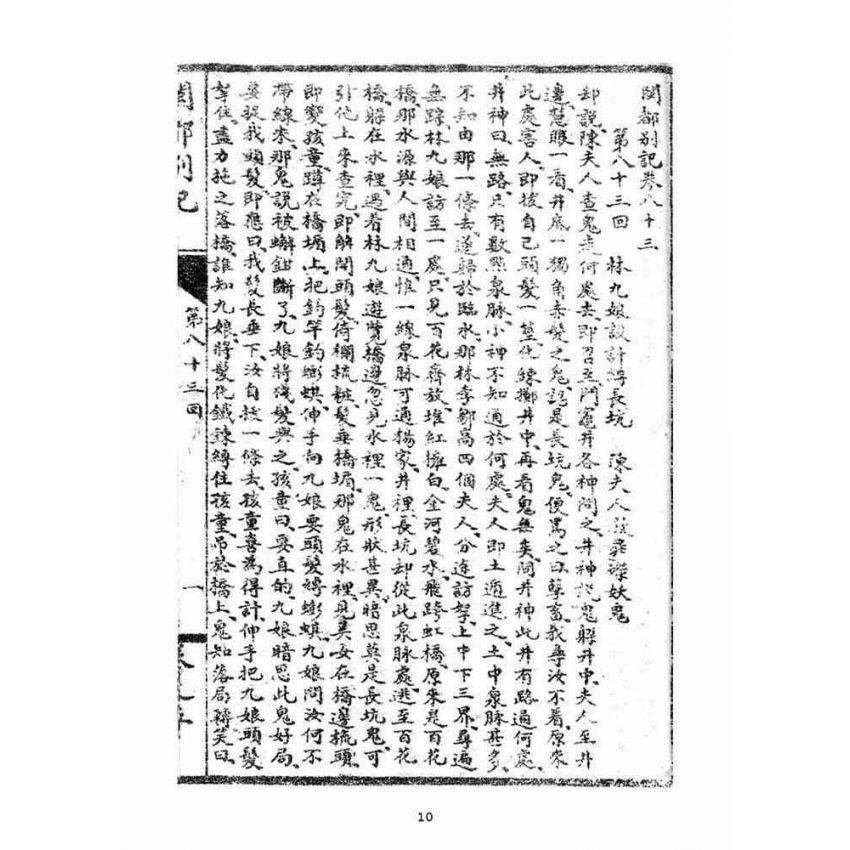 閩都別記卷八十三
第八十三回　林九娘設計縛長坑　陳夫人 妖鬼
却說陳夫人查鬼走何處去、即召至門竈井各神問之、井神說鬼躲井中、夫人至井
邊、慧眼一看、井底一獨角赤髮之鬼、認是長坑鬼、便罵之曰、孽畜、我尋汝不着、原來
此處害人、即拔自己頭髮一莖、化鍊擲井中、再看鬼無矣、問井神此井有路通何處、
井神曰、無路、只有數點泉脉、小神不知通於何處、夫人即土遁進之、土中泉脉甚多、
不知由那一條去、遂歸於臨水、那林李鄒高四個夫人、分途訪拏、上中下三界、尋遍
無踪、林九娘訪至一處、只見百花齊放、堆紅擁白、金河碧水、飛跨虹橋、原來是百花
橋、那水源與人間相通、惟一線泉脉、可通楊家井裡、長坑却從此泉脉處逃至百花
橋、躲在水裡、遇着林九娘遊覽橋邊、忽見水裡一鬼、形狀甚異、暗思莫是長坑鬼、可
引他上來查究、即解開頭髮、倚欄梳粧、髮垂橋墘、那鬼在水裡、見美女在橋邊梳頭、
即變孩童、蹲在橋墘上、把釣竿釣蟛蜞、伸手向九娘要頭髮縛蟛蜞、九娘問汝何不
帶線來、那鬼說被蠏鉗斷了、九娘將殘髮與之、孩童曰、要直的、九娘暗思此鬼好局、
要捉我頭髮、即應曰、我髮長垂下、汝自拔一條去、孩童喜為得計、伸手把九娘頭髮
拏住、盡力拖之落橋、誰知九娘將髮化鐵鍊、縛住孩童、吊於橋上、鬼知落局、轉笑曰、
閩都別記
第八十三回
一